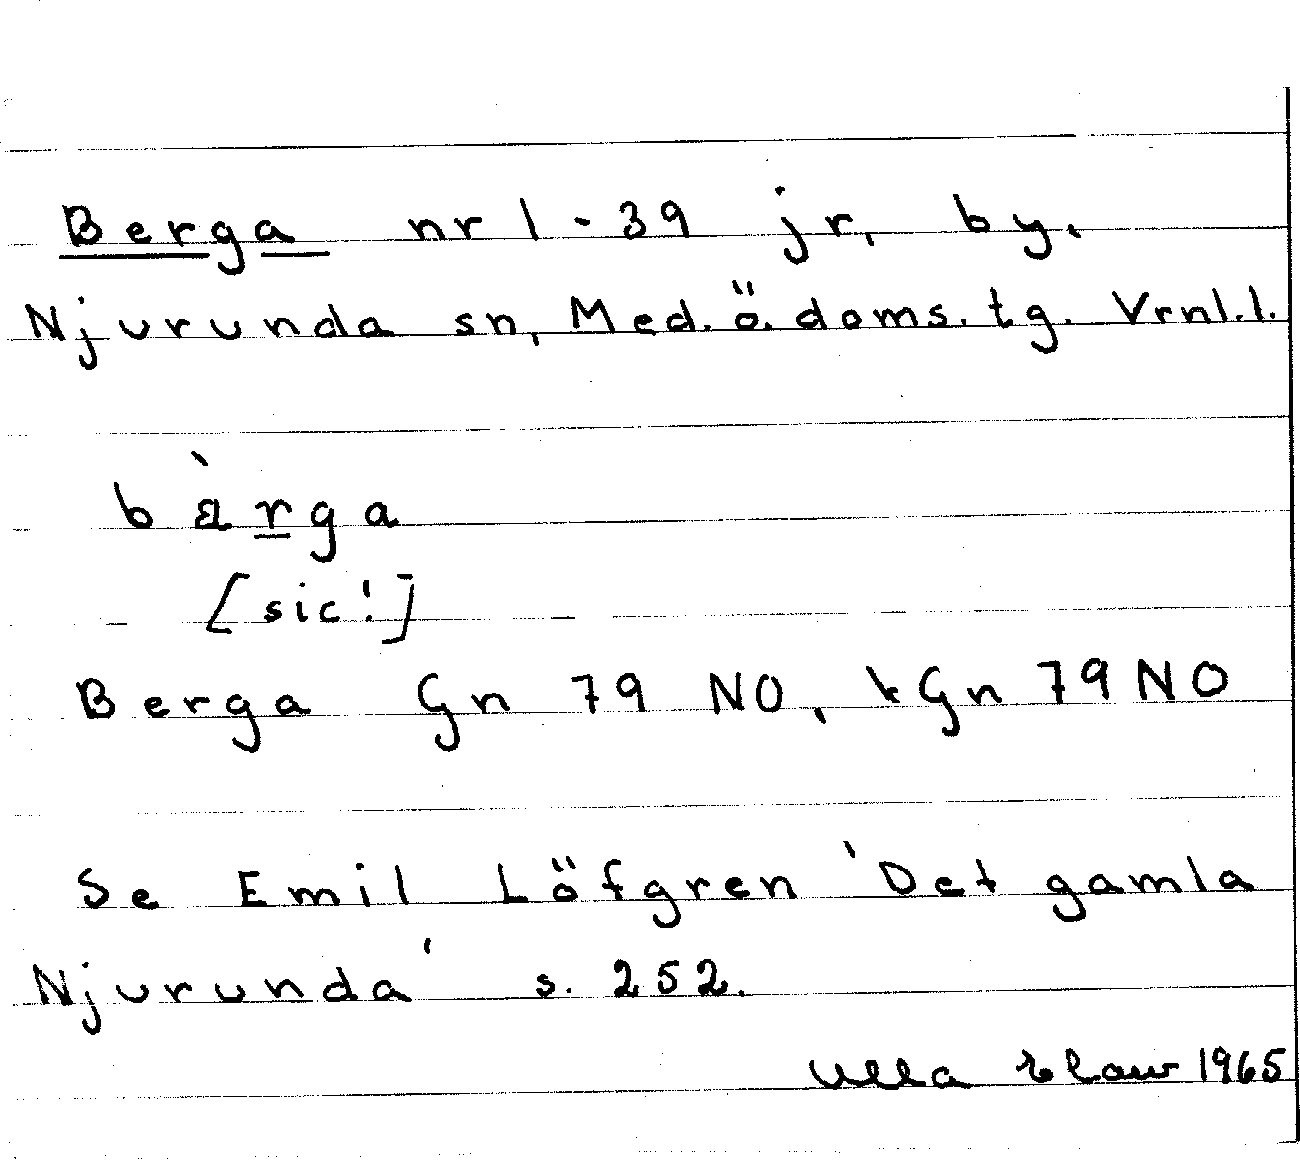 Berga nr 1-39 jr, by.
Njurunda sn, Med. ö. doms. tg. Vrnl.l.
bàrga
[sic!]
Berga Gn 79 NO, kGn 79 NO
Se Emil Löfgren 'Det gamla
Njurunda' s. 252.
Ulla 1965